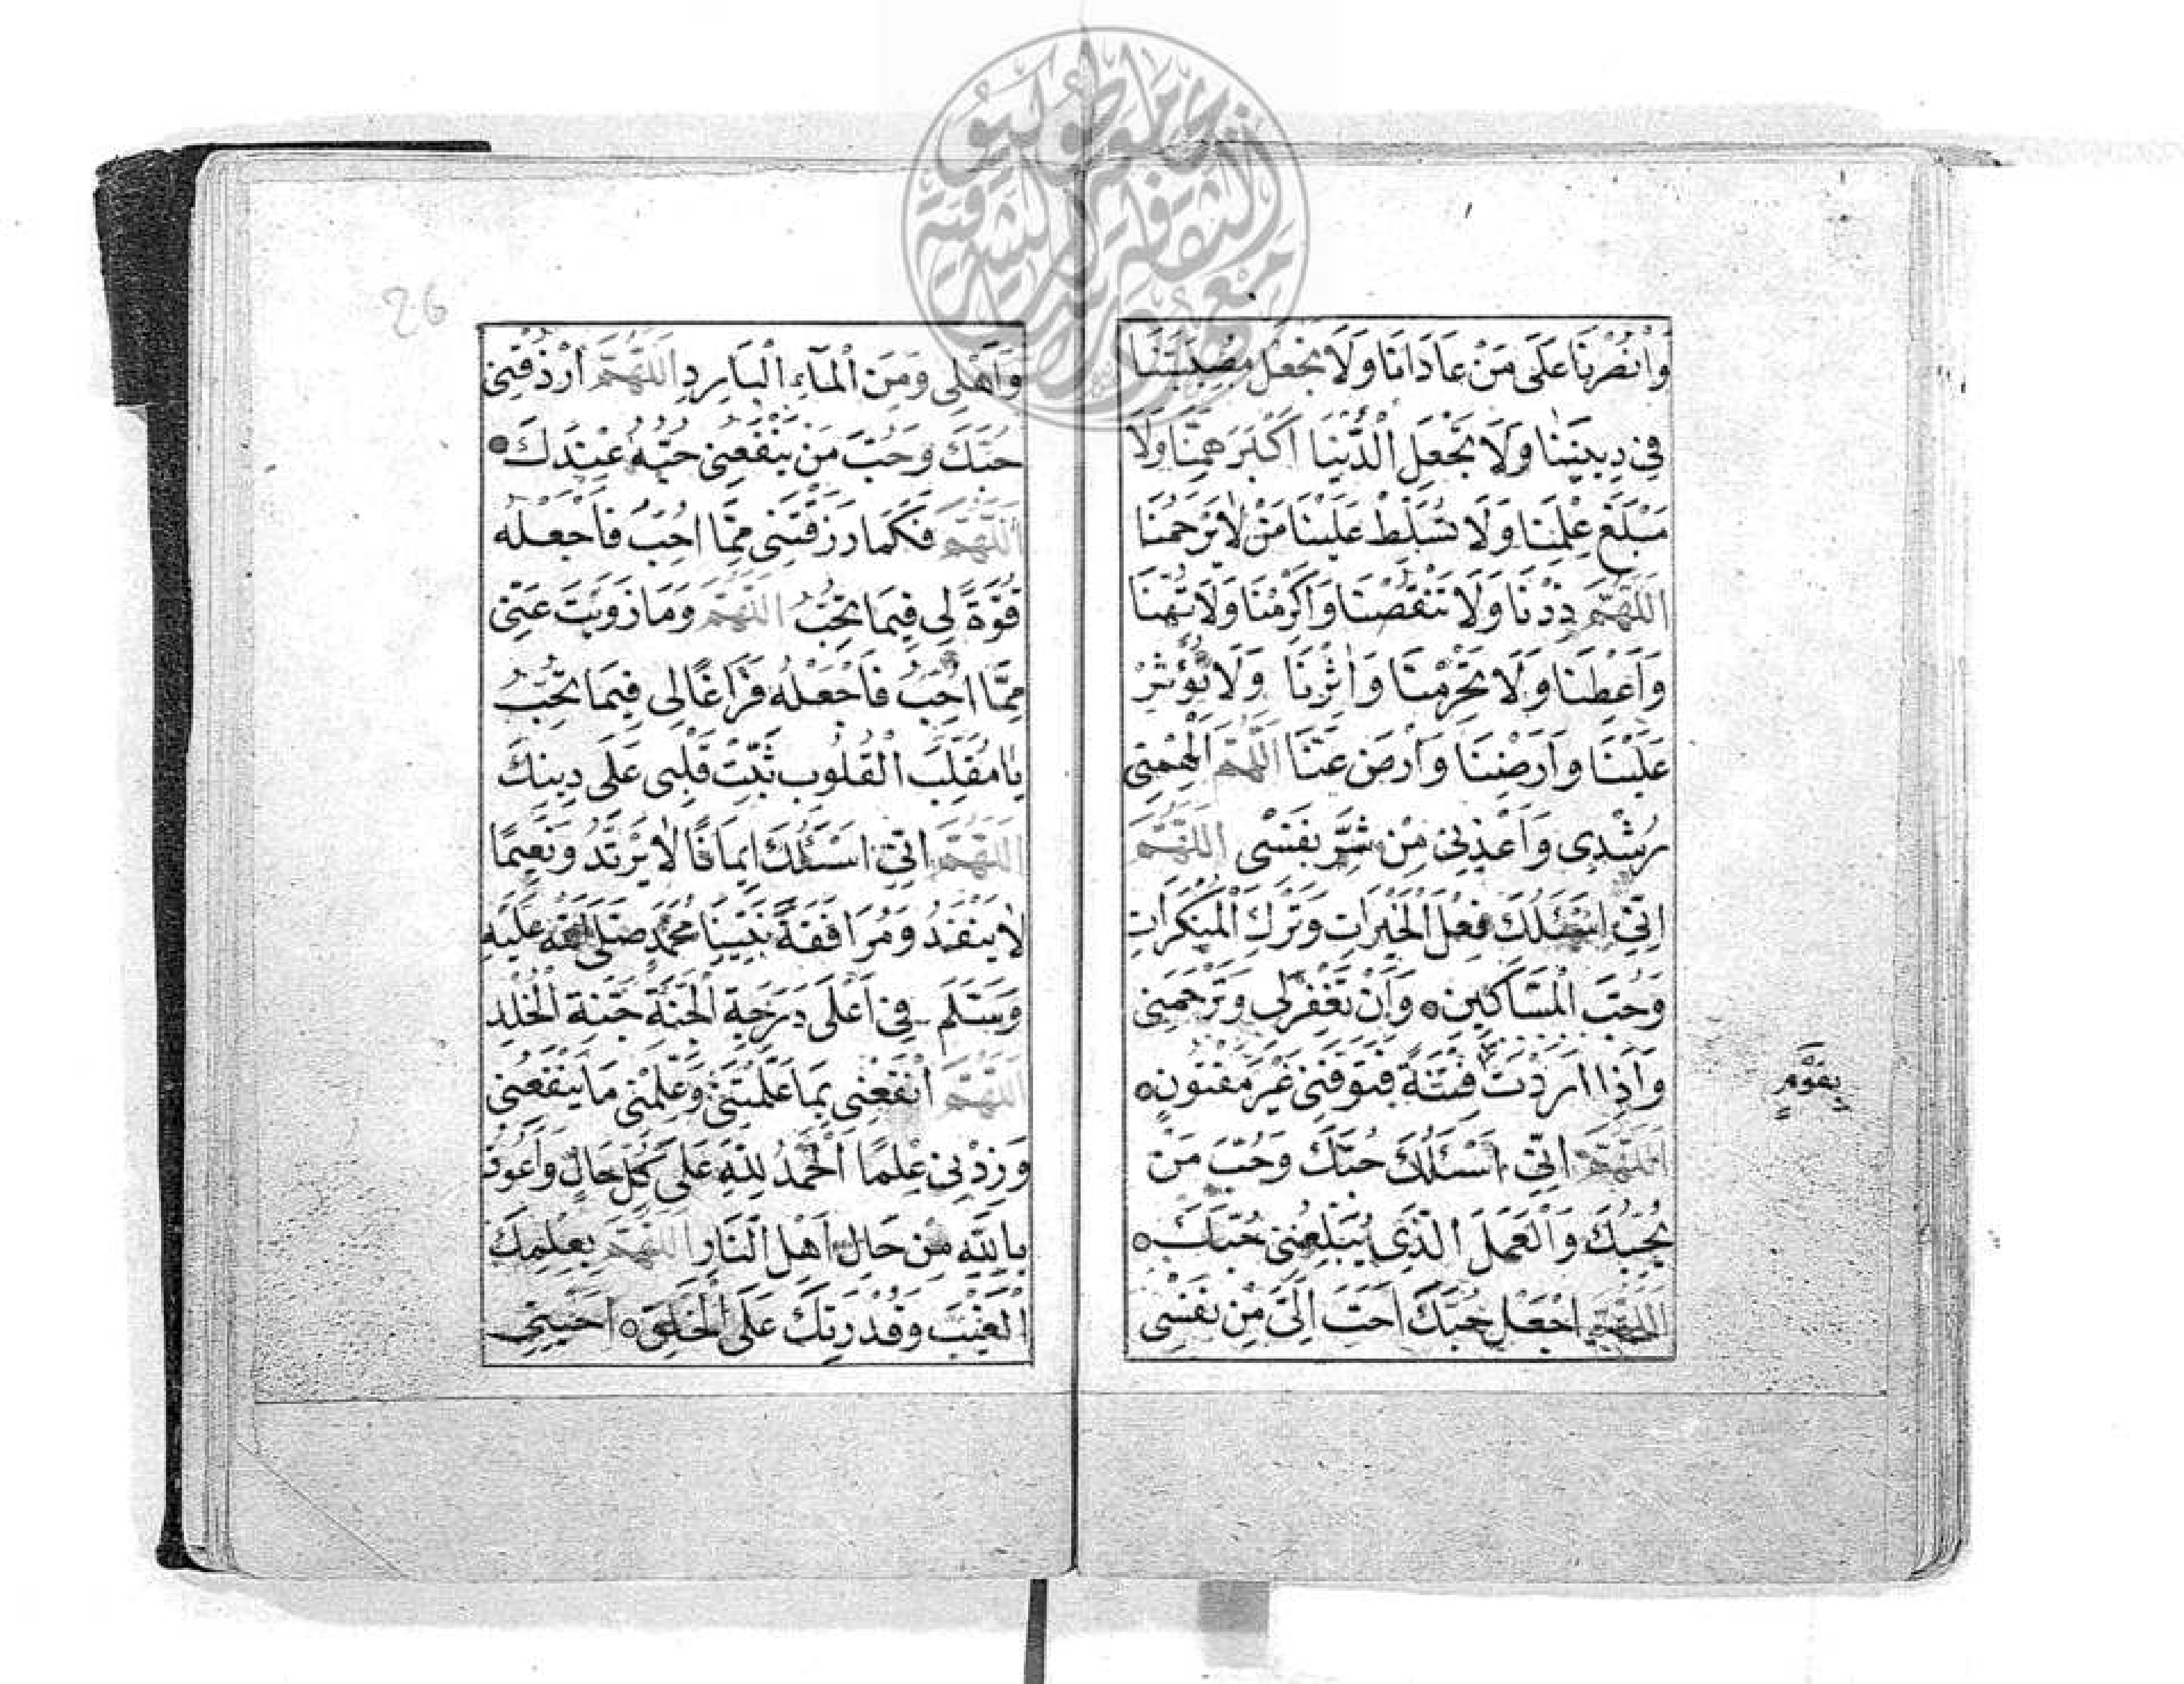 وَانْصُرْنَا عَلَى مَنْ عَادَانَا وَلَا تَجْعَلْ مُصِيبَتَنَا
فِي دِينِنَا وَلَا تَجْعَلِ الدُّنْيَا أَكْبَرَ هَمِّنَا وَلَا
مَبْلَغَ عِلْمِنَا وَلَا تُسَلِّطْ عَلَيْنَا مَنْ لَا يَرْحَمُنَا
اَللّٰهُمَّ زِدْنَا وَلَا تَنْقُصْنَا وَأَكْرِمْنَا وَلَا تُهِنَّا
وَأَعْطِنَا وَلَا تَحْرِمْنَا وَاٰثِرْنَا وَلَا تُؤْثِرْ
عَلَيْنَا وَأَرْضِنَا وَارْضَ عَنَّا اَللّٰهُمَّ أَلْهِمْنِي
رُشْدِي وَأَعِذْنِي مِنْ شَرِّ نَفْسِي اَللّٰهُمَّ
اِنِّي اَسْئَلُكَ فِعْلَ الْخَيْرَاتِ وَتَرْكَ الْمُنْكَرَاتِ
وَحُبَّ الْمَسَاكِينِ ۝ وَأَنْ تَغْفِرَ لِي وَتَرْحَمَنِي
وَإِذَا اَرَدْتَ فِتْنَةً فَتَوَفَّنِي غَيْرَ مَفْتُونٍ ۝
بِقَوْمٍ
اَللّٰهُمَّ اِنِّي اَسْئَلُكَ حُبَّكَ وَحُبَّ مَنْ
يُحِبُّكَ وَالْعَمَلَ الَّذِي يُبَلِّغُنِي حُبَّكَ ۝
اَللّٰهُمَّ اجْعَلْ حُبَّكَ اَحَبَّ اِلَيَّ مِنْ نَفْسِي
26
وَأَهْلِي وَمِنَ الْمَاءِ الْبَارِدِ اَللّٰهُمَّ ارْزُقْنِي
حُبَّكَ وَحُبَّ مَنْ يَنْفَعُنِي حُبُّهُ عِنْدَكَ ۝
اَللّٰهُمَّ فَكَمَا رَزَقْتَنِي مِمَّا اُحِبُّ فَاجْعَلْهُ
قُوَّةً لِي فِيمَا تُحِبُّ اَللّٰهُمَّ وَمَا زَوَيْتَ عَنِّي
مِمَّا اُحِبُّ فَاجْعَلْهُ فَرَاغًا لِي فِيمَا تُحِبُّ
يَا مُقَلِّبَ الْقُلُوبِ ثَبِّتْ قَلْبِي عَلَى دِينِكَ
اَللّٰهُمَّ اِنِّي اَسْئَلُكَ اِيمَانًا لَا يَرْتَدُّ وَنَعِيمًا
لَا يَنْفَدُ وَمُرَافَقَةَ نَبِيِّنَا مُحَمَّدٍ صَلَّى اللّٰهُ عَلَيْهِ
وَسَلَّمَ فِي اَعْلَى دَرَجَةِ الْجَنَّةِ جَنَّةِ الْخُلْدِ
اَللّٰهُمَّ انْفَعْنِي بِمَا عَلَّمْتَنِي وَعَلِّمْنِي مَا يَنْفَعُنِي
وَزِدْنِي عِلْمًا اَلْحَمْدُ لِلّٰهِ عَلَى كُلِّ حَالٍ وَأَعُوذُ
بِاللّٰهِ مِنْ حَالِ اَهْلِ النَّارِ اَللّٰهُمَّ بِعِلْمِكَ
الْغَيْبَ وَقُدْرَتِكَ عَلَى الْخَلْقِ ۝ اَحْيِنِي